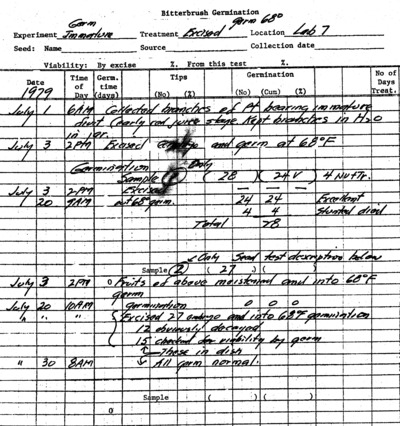 Bitterbrush Germination
Germ germ 68°
Experiment Immature Treatment Excised Location Lab 7
Seed: Name Source Collection date
Viability: By excise %. From this test %.
Date Time of Day Germ. time (days) Tips (No) (%) Germination (No) (Cum) (%) No of Days Treat.
1979
July 1 6AM Collected branches of Pt bearing immature
fruit (early red juice stage Kept branches in H2O
in jar.
July 3 2PM Excised embryo and germ at 68°F
Germination Only
Sample ( 28 )( 24 V ) 4 NV+Tr.
July 3 2PM Excised
" 20 9AM out 68° germ. 24 24 Excellent
4 4 Stunted died
Total 28
Only Seed test description below
Sample (2) ( 27 ) ( )
July 3 2PM 0 Fruits of above moistened and into 68°F
germ
July 20 10AM germination 0 0 0
" " " Excised 27 embryo and into 68°F germination
12 obviously decayed
15 checked for viability by germ
These in dish
" 30 8AM All germ normal.
Sample ( ) ( )
0